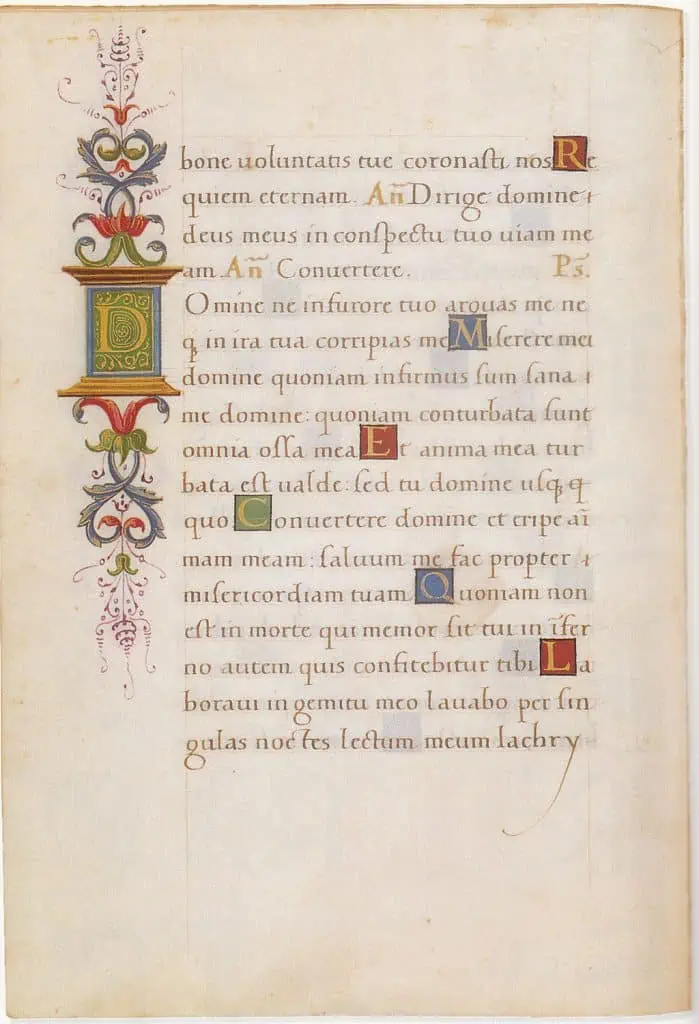 bone uoluntatis tue coronaſti nos Re
quiem eternam. An̄ Dirige domine
deus meus in conſpectu tuo uiam me
am. An̄ Conuertere. Ps̄.
Domine ne infurore tuo arguas me ne
q̨ in ira tua corripias me Miſerere mei
domine quoniam infirmus ſum ſana
me domine: quoniam conturbata ſunt
omnia oſſa mea Et anima mea tur
bata eſt ualde: ſed tu domine uſq̨ q̨
quo Conuertere domine et eripe aī
mam meam: ſaluum me fac propter
miſericordiam tuam Quoniam non
eſt in morte qui memor ſit tui in īfer
no autem quis confitebitur tibi La
boraui in gemitu meo lauabo per ſin
gulas noctes lectum meum lachry